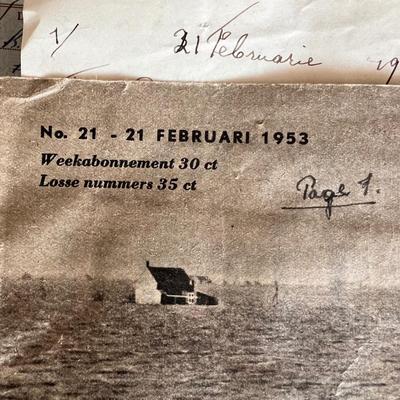 1/ 21 Februarie 19
No. 21 - 21 FEBRUARI 1953
Weekabonnement 30 ct
Losse nummers 35 ct
Page 1.